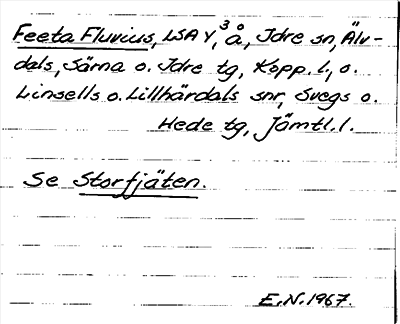 Feeta Fluvius, LSA V, ³ å, Idre sn, Älv-
dals, Särna o. Idre tg, Kopp. l., o.
Linsells o. Lillhärdals snr, Svegs o.
Hede tg, Jämtl. l.
Se Storfjäten.
E.N. 1967.